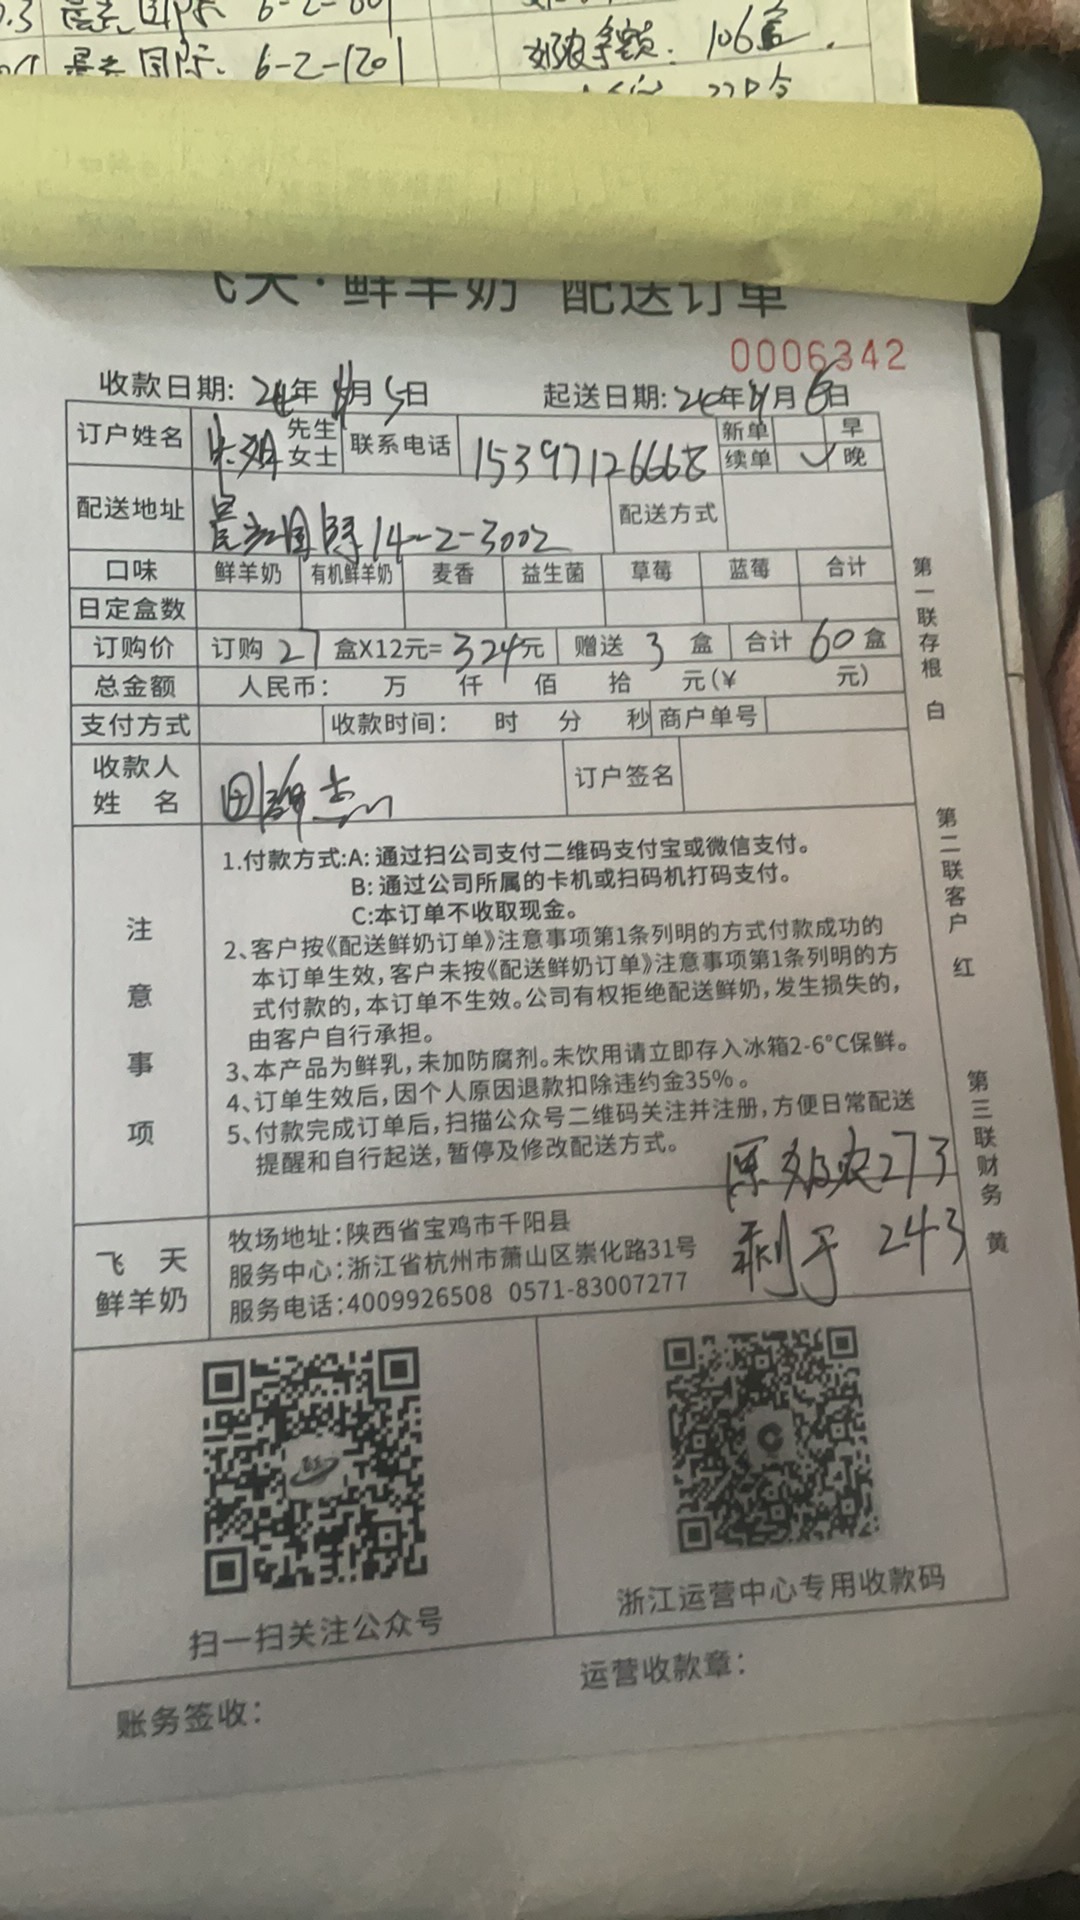 6-2-601
国际. 6-2-1201
奶农余额: 106盒.
飞天·鲜羊奶 配送订单
0006342
收款日期: 24年 月5日 起送日期: 24年 月6日
订户姓名 朱姐 先生 女士 联系电话 15397126668 新单 早
续单 ✓ 晚
配送地址 国际14-2-3002 配送方式
口味 鲜羊奶 有机鲜羊奶 麦香 益生菌 草莓 蓝莓 合计
日定盒数
订购价 订购 27 盒X12元= 324元 赠送 3 盒 合计 60 盒
总金额 人民币: 万 仟 佰 拾 元(¥ 元)
支付方式 收款时间: 时 分 秒 商户单号
收款人
姓 名 订户签名
注意事项
1.付款方式:A: 通过扫公司支付二维码支付宝或微信支付。
B: 通过公司所属的卡机或扫码机打码支付。
C:本订单不收取现金。
2、客户按《配送鲜奶订单》注意事项第1条列明的方式付款成功的
本订单生效,客户未按《配送鲜奶订单》注意事项第1条列明的方
式付款的,本订单不生效。公司有权拒绝配送鲜奶,发生损失的,
由客户自行承担。
3、本产品为鲜乳,未加防腐剂。未饮用请立即存入冰箱2-6°C保鲜。
4、订单生效后,因个人原因退款扣除违约金35%。
5、付款完成订单后,扫描公众号二维码关注并注册,方便日常配送
提醒和自行起送,暂停及修改配送方式。
原奶农273
剩于 243
飞 天
鲜羊奶
牧场地址:陕西省宝鸡市千阳县
服务中心:浙江省杭州市萧山区崇化路31号
服务电话:4009926508 0571-83007277
扫一扫关注公众号
浙江运营中心专用收款码
账务签收:
运营收款章:
第一联存根 白
第二联客户 红
第三联财务 黄